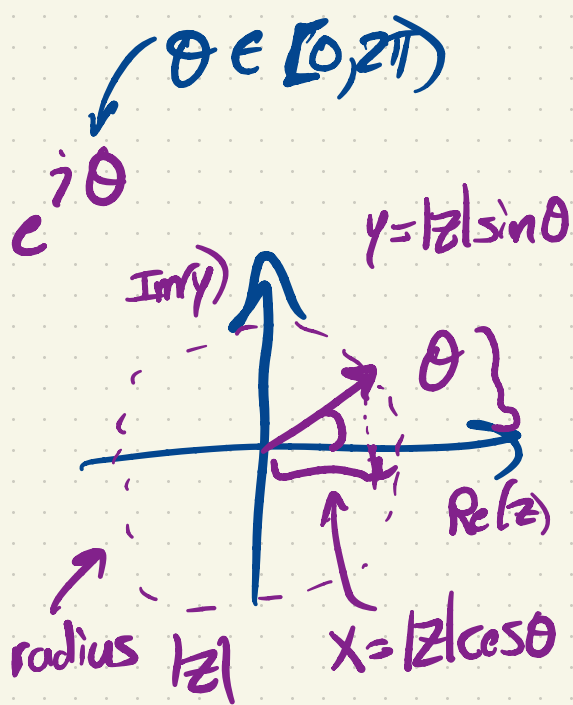 θ ∈ [0,2π)
e^{iθ}
y=|z|sinθ
Im(y)
θ
Re(z)
radius |z|
x=|z|cosθ